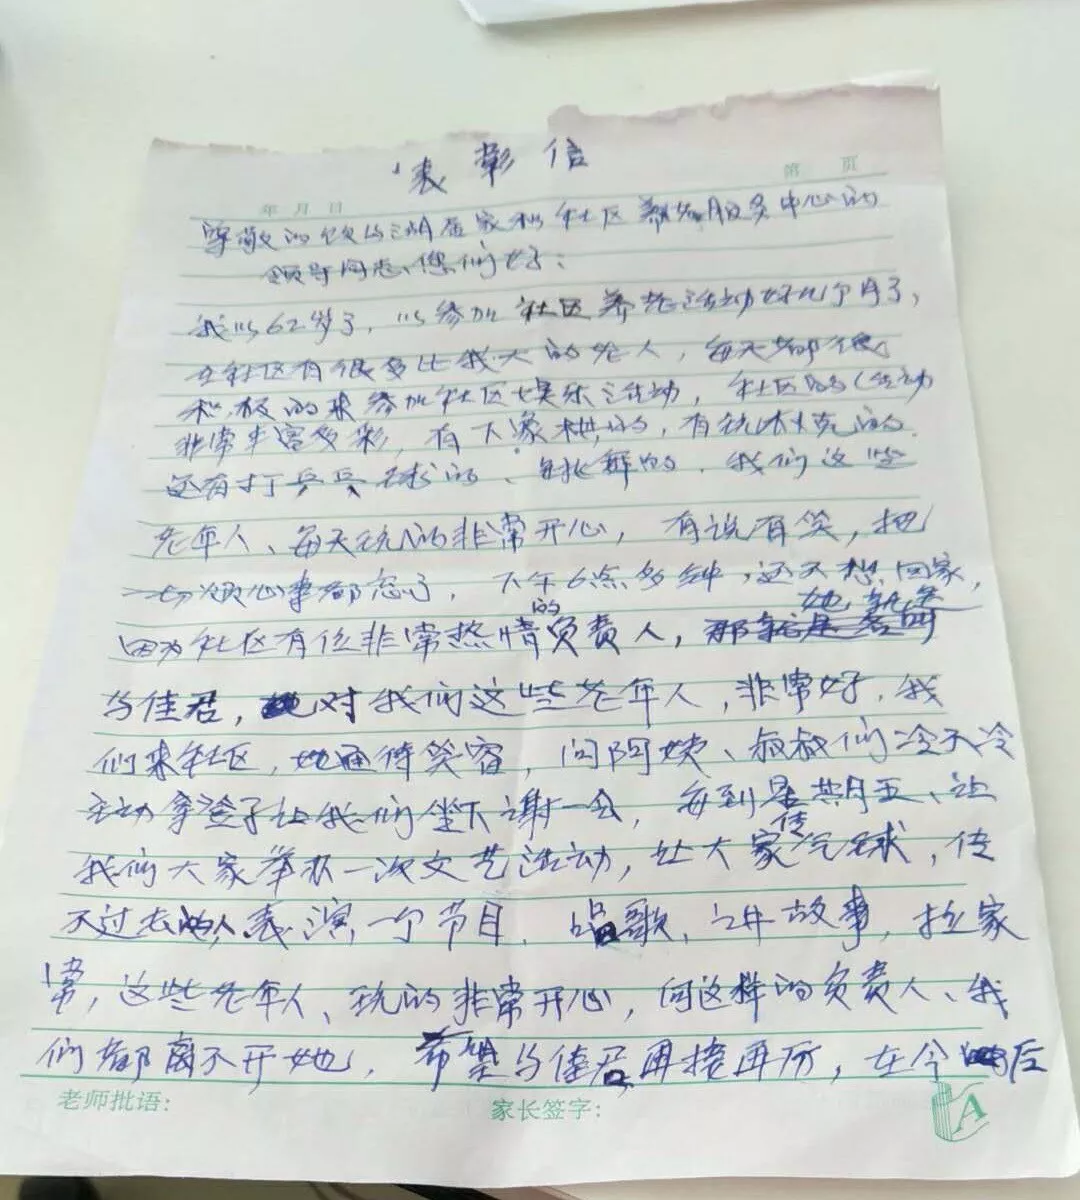 表彰信
第 页
年 月 日
尊敬的饮马湖居家和社区养老服务中心的
领导同志、您们好：
我叫62岁了，叫参加社区养老活动好几个月了，
在社区有很多比我大的老人，每天都很
积极的来参加社区娱乐活动，社区的活动
非常丰富多彩，有下象棋的，有玩扑克的
还有打乒乓球的、跳舞的．我们这些
老年人、每天玩的非常开心，有说有笑，把
一切烦心事都忘了，下午6点多钟，还不想回家，
因为社区有位非常热情的负责人，她就是
马佳君，对我们这些老年人，非常好．我
们来社区，她面待笑容，问阿姨、叔叔们冷不冷
主动拿登子让我们坐下谢一会，每到星期五、让
我们大家举办一次文艺活动，让大家传汽球，传
不过去的人表演一个节目．唱歌、讲故事，拉家
常，这些老年人、玩的非常开心，向这样的负责人、我
们都离不开她，希望马佳君再接再厉，在今后
老师批语：
家长签字：
A